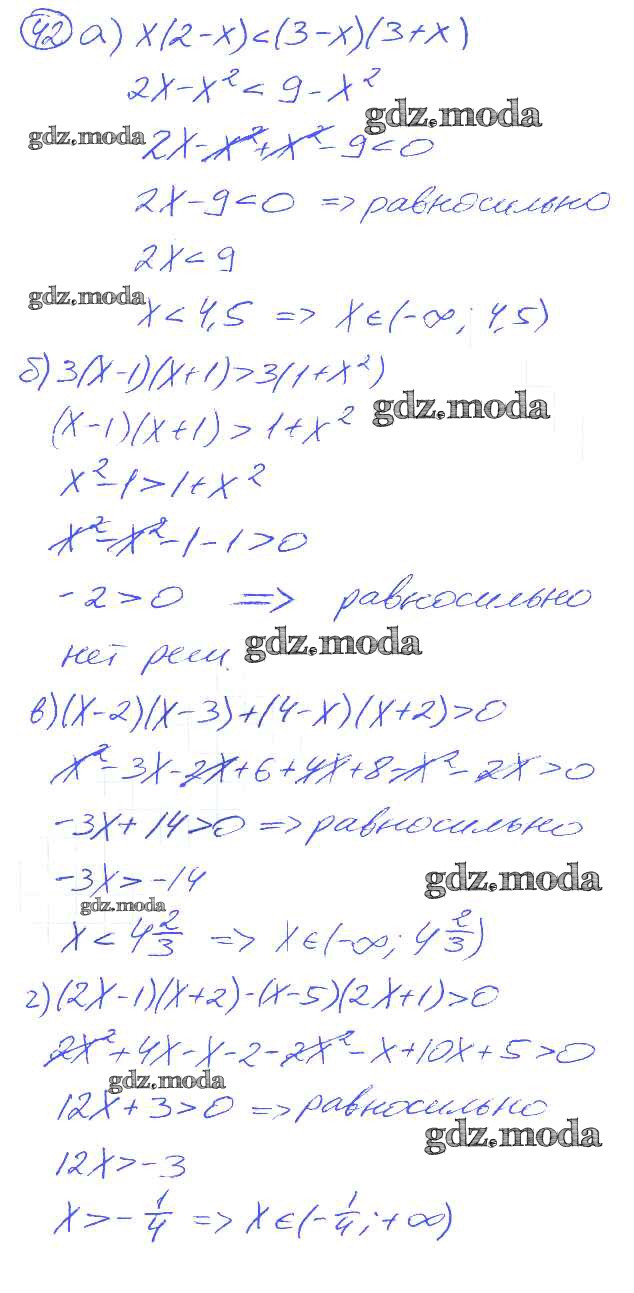 42 а) x(2-x)<(3-x)(3+x)
2x-x²<9-x²
gdz.moda
gdz.moda
2x-x²+x²-9<0
2x-9<0 => равносильно
2x<9
gdz.moda
x<4,5 => x∈(-∞; 4,5)
б) 3(x-1)(x+1)>3(1+x²)
gdz.moda
(x-1)(x+1)>1+x²
x²-1>1+x²
x²-x²-1-1>0
-2>0 => равносильно
нет реш.
gdz.moda
в) (x-2)(x-3)+(4-x)(x+2)>0
x²-3x-2x+6+4x+8-x²-2x>0
-3x+14>0 => равносильно
-3x>-14
gdz.moda
gdz.moda
x<4 2/3 => x∈(-∞; 4 2/3)
г) (2x-1)(x+2)-(x-5)(2x+1)>0
2x²+4x-x-2-2x²-x+10x+5>0
gdz.moda
12x+3>0 => равносильно
gdz.moda
12x>-3
x>-1/4 => x∈(-1/4; +∞)